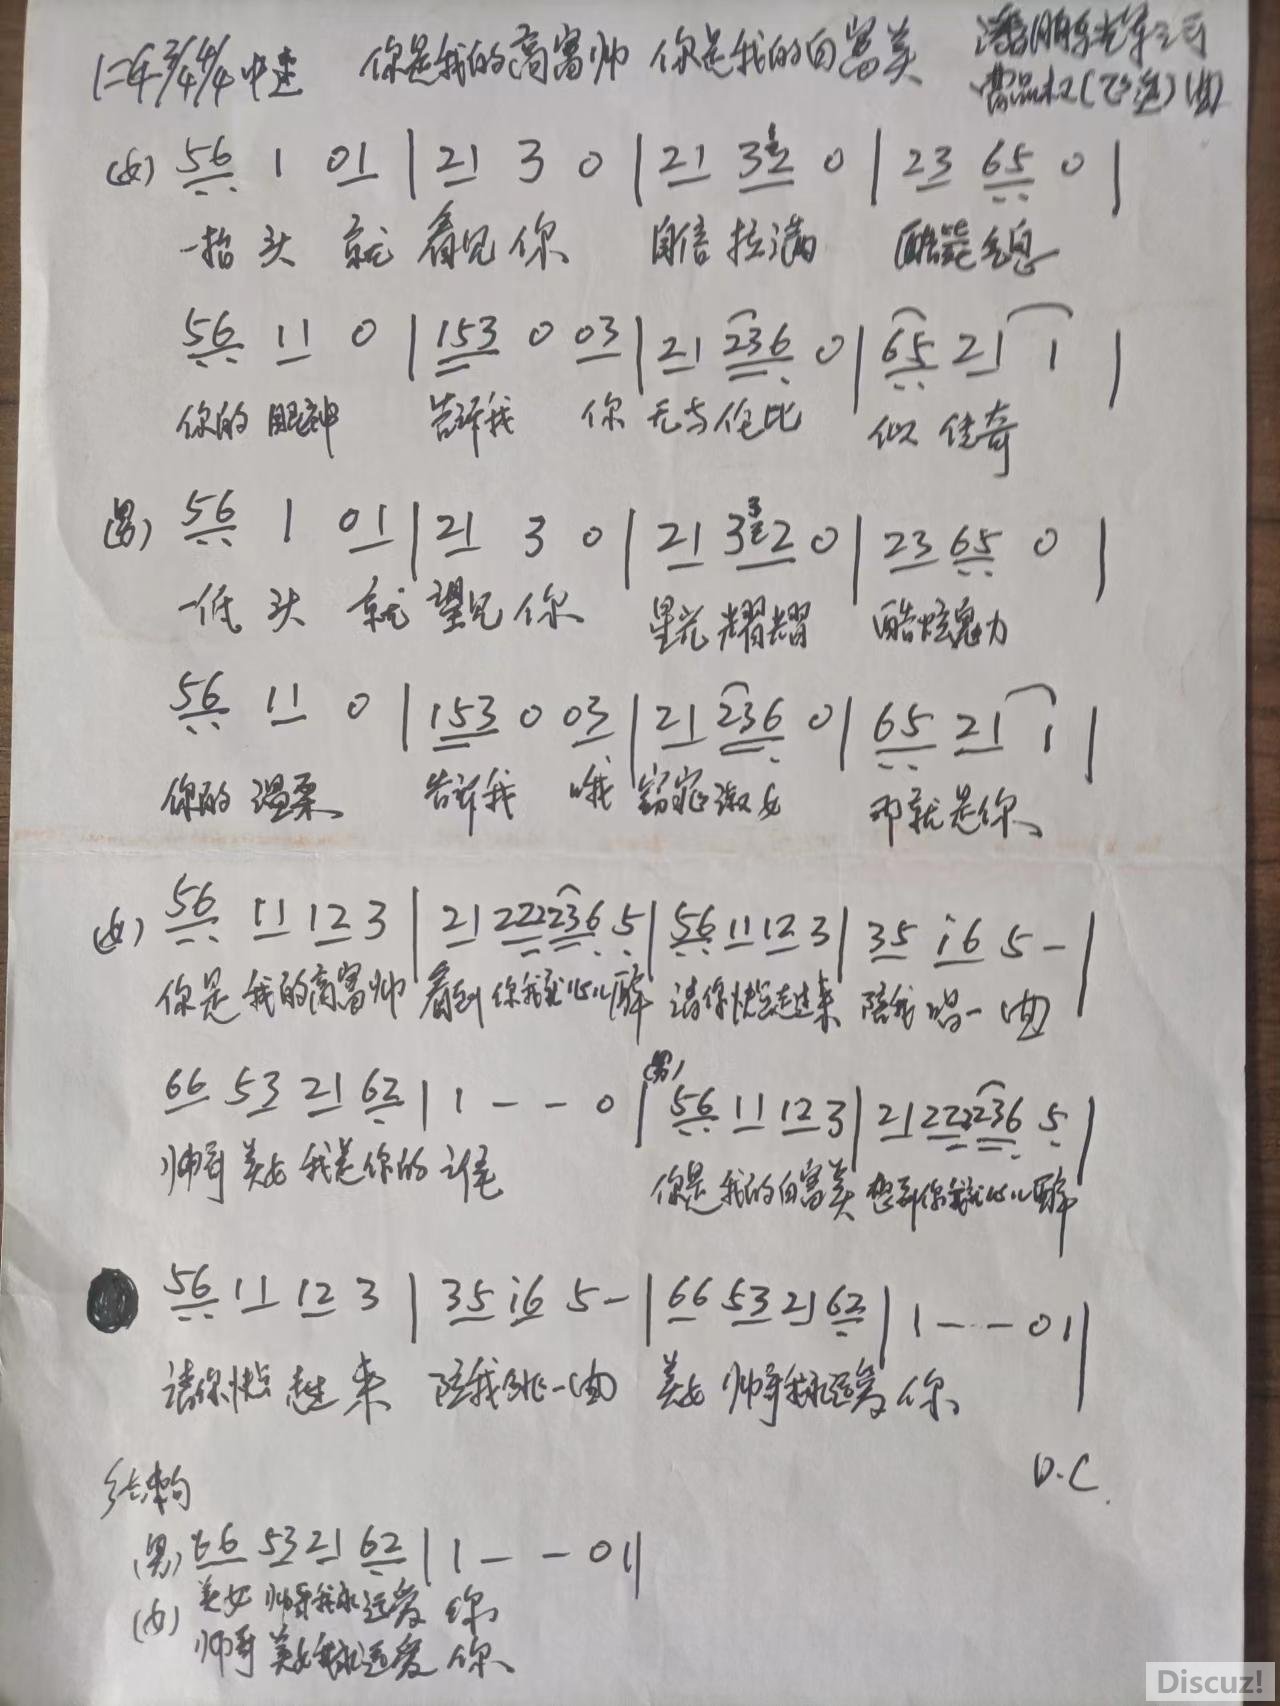 1=F 3/4 4/4 中速 你是我的高富帅 你是我的白富美
曲
(女) 56 1 01 | 21 3 0 | 21 32 0 | 23 65 0 |
一抬头 就 看见你 自信拉满 酷毙了
56 11 0 | 153 0 03 | 21 236 0 | 65 21 1 |
你的眼神 告诉我 你 无与伦比 似传奇
(男) 56 1 01 | 21 3 0 | 21 32 0 | 23 65 0 |
一低头 就 望见你 星光耀耀 酷炫魅力
56 11 0 | 153 0 03 | 21 236 0 | 65 21 1 |
你的温柔 告诉我 哦 窈窕淑女 那就是你
(女) 56 11 12 3 | 21 222 236 5 | 56 11 12 3 | 35 i6 5 - |
你是我的高富帅 看到你我就心儿醉 请你快点走过来 陪我唱一曲
66 53 21 62 | 1 - - 0 | (男) 56 11 12 3 | 21 222 236 5 |
帅哥美女我是你的 你是我的白富美 想到你我就心儿醉
56 11 12 3 | 35 i6 5 - | 66 53 21 62 | 1 - - 0 ||
请你快点走过来 陪我跳一曲 美女帅哥我永远爱你
D.C.
结束句
(男) 66 53 21 62 | 1 - - 0 ||
美女帅哥我永远爱你
(女) 帅哥美女我永远爱你
Discuz!